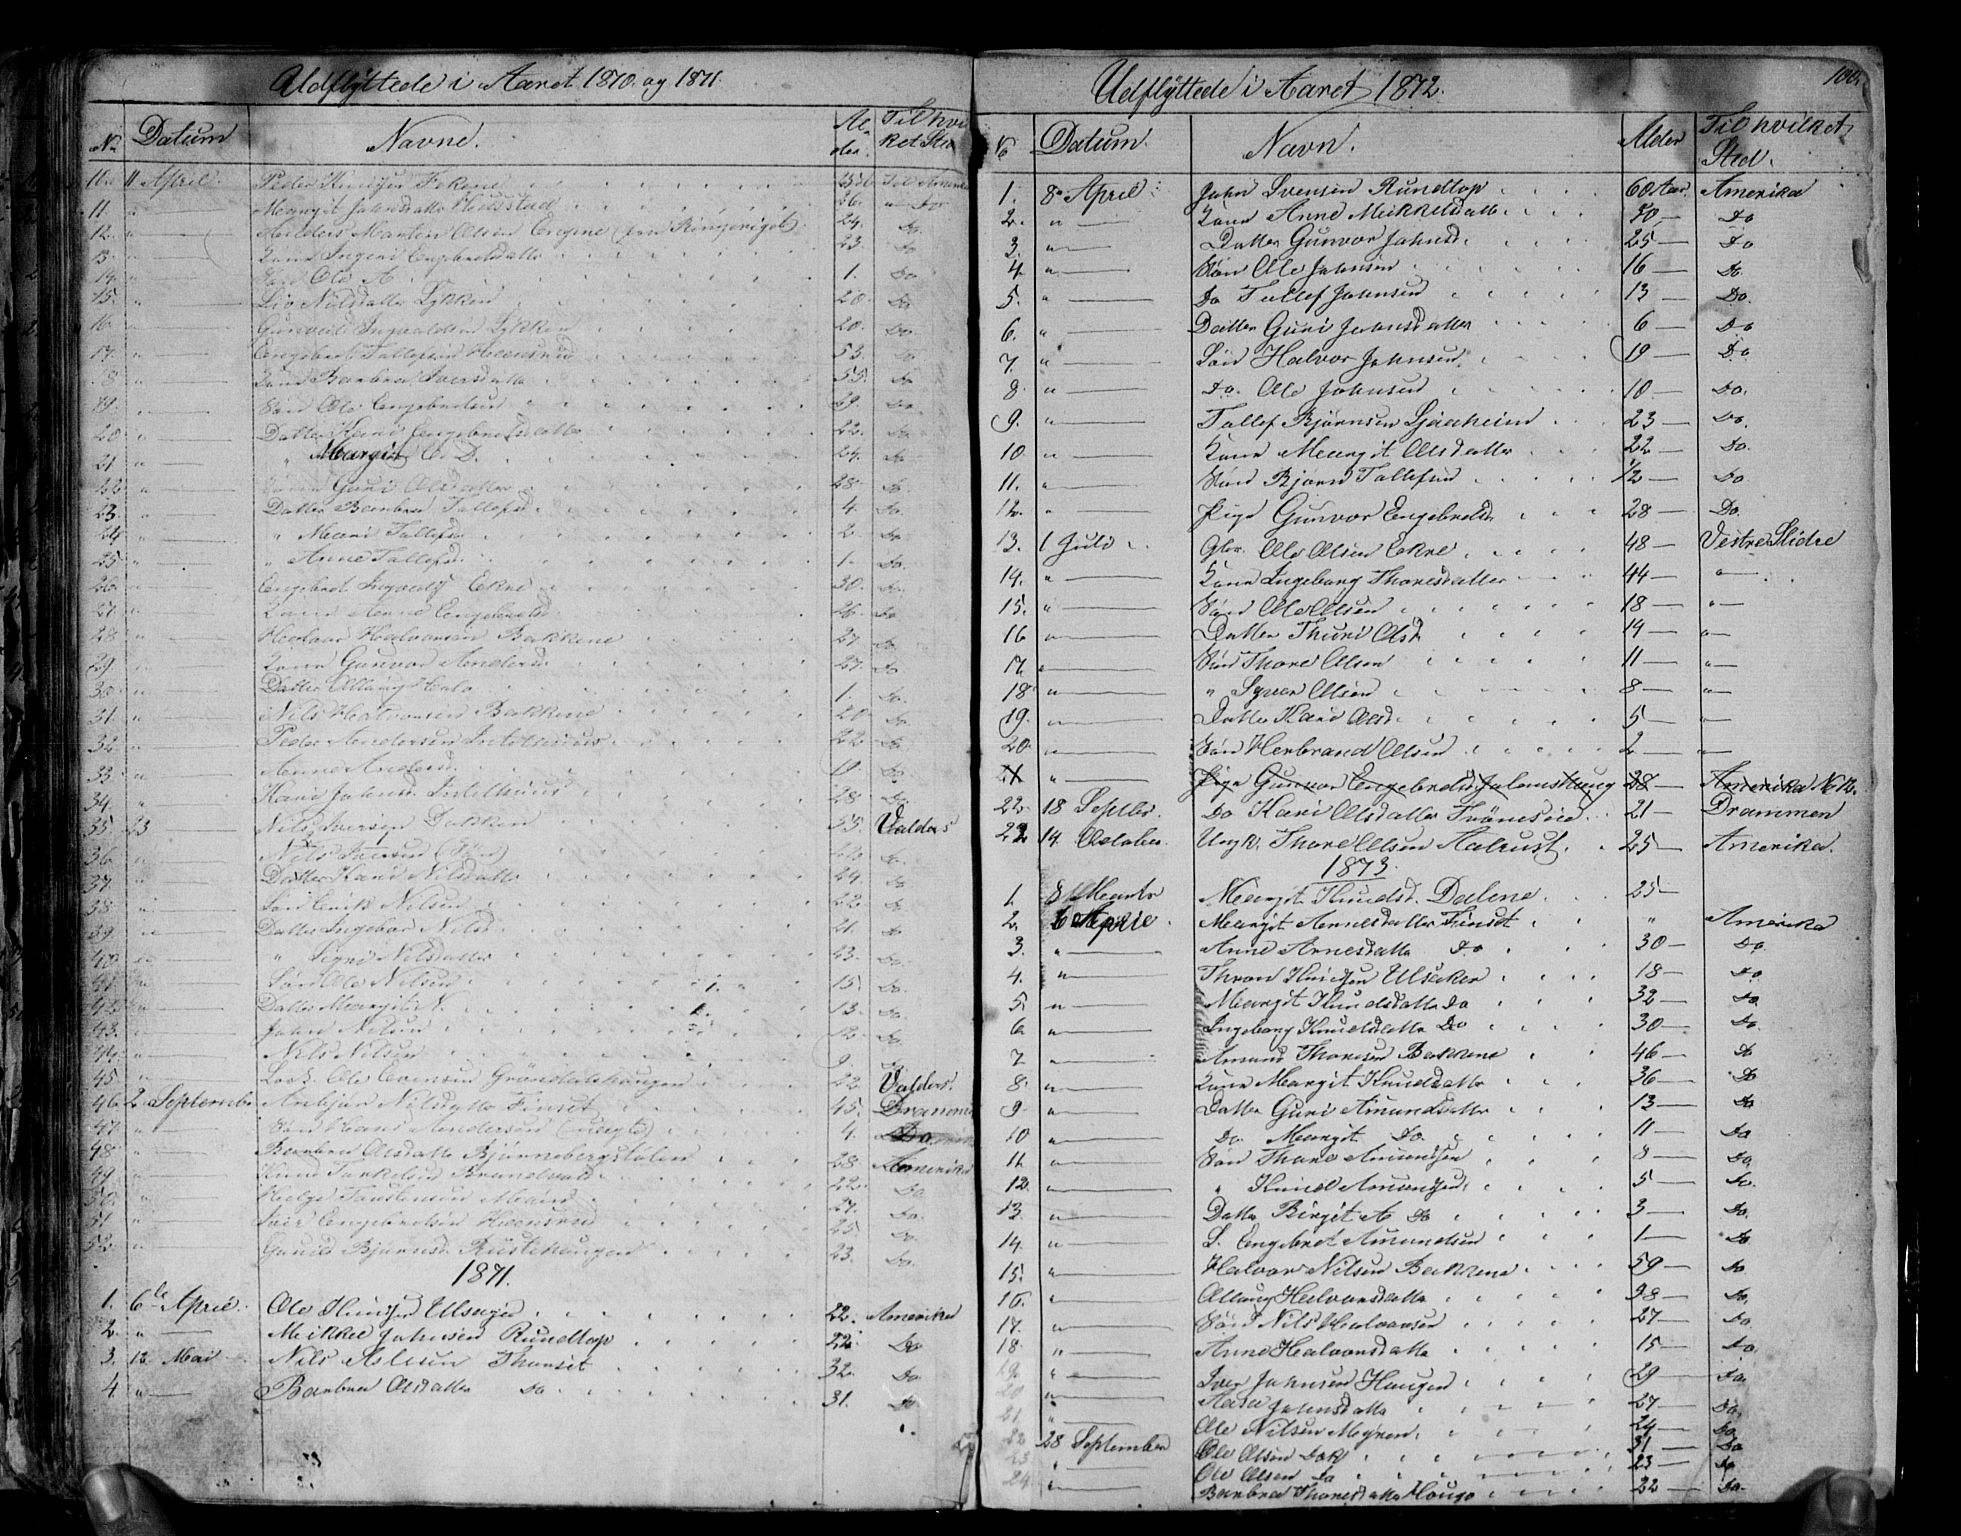 Udflyttede i Aaret 1870 og 1871.
No Datum Navne. Al-der. Til hvilket Sted
10. 11 April. Peder Til Amerika
11 " Margit Johnsdatter 36. " Do
12. " Anders Martin Olsen (fra Ringeriget) 29. Do.
13. " Kone Ingeri Engebretsdatter 23. Do
14. " Søn Ole A. 1. Do.
15. " Liv Nilsdatter Lykken 20. Do.
16. " Gunvald Lykken 20. Do.
17. " Engebret Tollefsen 53. Do
18 " Kone Barbra Iversdatter 55. Do
19. " Søn Ole Engebretsen 29. Do.
20 " Datter Kari Engebretsdatter 22. Do
21 " " Margit E. D. 24. Do
22 " Guri Olsdatter 28. Do.
23. " Datter Barbra Tollefsd 4. Do.
24 " " Mari Tollefsd 2. Do.
25. " " Anne Tollefsd 1. Do.
26. " Engebret Ekre 30. Do.
27. " Kone Anne Engebretsd 26. Do.
28. " Halvor Halvorsen Bakkene 27 Do
29. " Kone Gunvor Andersd 27. Do
30. " Datter 1. Do.
31. " Nils Halvorsen Bakkene 20. Do
32. " Peder Andersen 22. Do.
33. " Anne Andersd. 19. Do.
34. " Kari Johnsd. 28. Do.
35. 23 Nils Iversen 55. Valders
36. " Nils Iversen (Søn) Do.
37. " Datter Kari Nilsdatter 24. Do
38. " Søn Erik Nilsen 22. Do
39. " Datter Ingebor Nilsd. 21. Do
40. " " Sigri Nilsdatter Do.
41. " Søn Ole Nilsen 15. Do.
42. " Datter Margit N. 13. Do.
43. " John Nilsen 12. Do.
44. " Nils Nilsen 9. Do
45 " Ole Evensen Grøndalshaugen 22. Valders.
46. 2 September Anbjør Nilsdatter Finset 45. Dramme
47. " Søn Hans Andersen 4. Do.
48. " Barbra Olsdatter Bjørnebergstølen 28. Amerika
49. " Knud Torkelsen Brandvold 22. Do
50. " Helge Torstensen 27. Do.
51. " Iver Engebretsen 25. Do.
52. " Bjørnsd. Rustehaugen 23. Do.
1871.
1. 6te April. Ole Knudsen Ulsager 22. Amerika
2. " Mikkel Johnsen Rundtop 22. Do
3. 12 Mai Nils Aslesen Thunset 32. Do.
4. " Barbra Olsdatter Do 31. Do
Udflyttede i Aaret 1872. 100.
No Datum. Navn. Alder Til hvilket Sted.
1. 8de April John Svensen Rundtop 60 Aar. Amerika
2. " Kone Anne Mikkelsdatter 50, Do
3. " Datter Gunvor Johnsd. 25 Do
4. " Søn Ole Johnsen 16 Do
5. " Do Tollef Johnsen 13 Do.
6. " Datter Guri Johnsdatter 6 Do
7. " Søn Halvor Johnsen 19 Do
8. " Do. Ole Johnsen 10 Do.
9. " Tollef Bjørnsen Sjaaheim 23 Do.
10. " Kone Margit Olsdatter 22 Do.
11. " Søn Bjørn Tollefsen 1/2 Do
12. " Pige Gunvor Engebretsd. 28 Do.
13. 1 Juli Ole Olsen Ekre 48 Vestre Slidre
14. " Kone Ingeborg Thoresdatter 44 "
15. " Søn Ole Olsen 18 "
16 " Datter Thuri Olsd. 14 "
17. " Søn Thore Olsen 11 "
18 " " Syver Olsen 8 "
19. " Datter Kari Olsd. 5 "
20. " Søn Herbrand Olsen 2 "
21 " Pige Gunvor Engebretsd. 28 Amerika N. B.
22. 18 Septbr. Do Kari Olsdatter 21 Drammen
22 14. October. Ungk. Thore Olsen Aalrust. 25 Amerika.
1873.
1. 8 Marts Margit Knudsd. Dalene 25
2. 6 April. Margit Arnesdatter Finset " Amerika
3. " Anne Arnesdatter Do 30 Do.
4. " Thron Knudsen Ulsaker 18 Do
5. " Margit Knudsdatter Do 32 Do.
6. " Ingeborg Knudsdatter Do 30 Do.
7 " Amund Thoresen Bakkene 46 Do
8. " Kone Margit Knudsdatter 36 Do
9. " Datter Guri Amundsdatter 13 Do
10 " Do. Margit Do. 11 Do
11. " Søn Thore Amundsen 8 Do.
12. " " Knud Amundsen 5 Do.
13. " Datter Birgit A Do 3 Do.
14. " S. Engebret Amundsen 1 Do
15. " Halvor Nilsen Bakkene 59 Do
16. " Halvorsdatter Do.
17. " Søn Nils Halvorsen 27 Do
18. " Anne Halvorsdatter 15 Do.
19. " Iver Johnsen Haugen 29 Do.
20 " Aase Johnsdatter 27 Do
21. " Ole Nilsen 24 Do.
22 28 September Ole Olsen 31 Do
23 " Ole Olsen Do 23 Do
24. " Barbra Thoresdatter Hougo 22 Do.